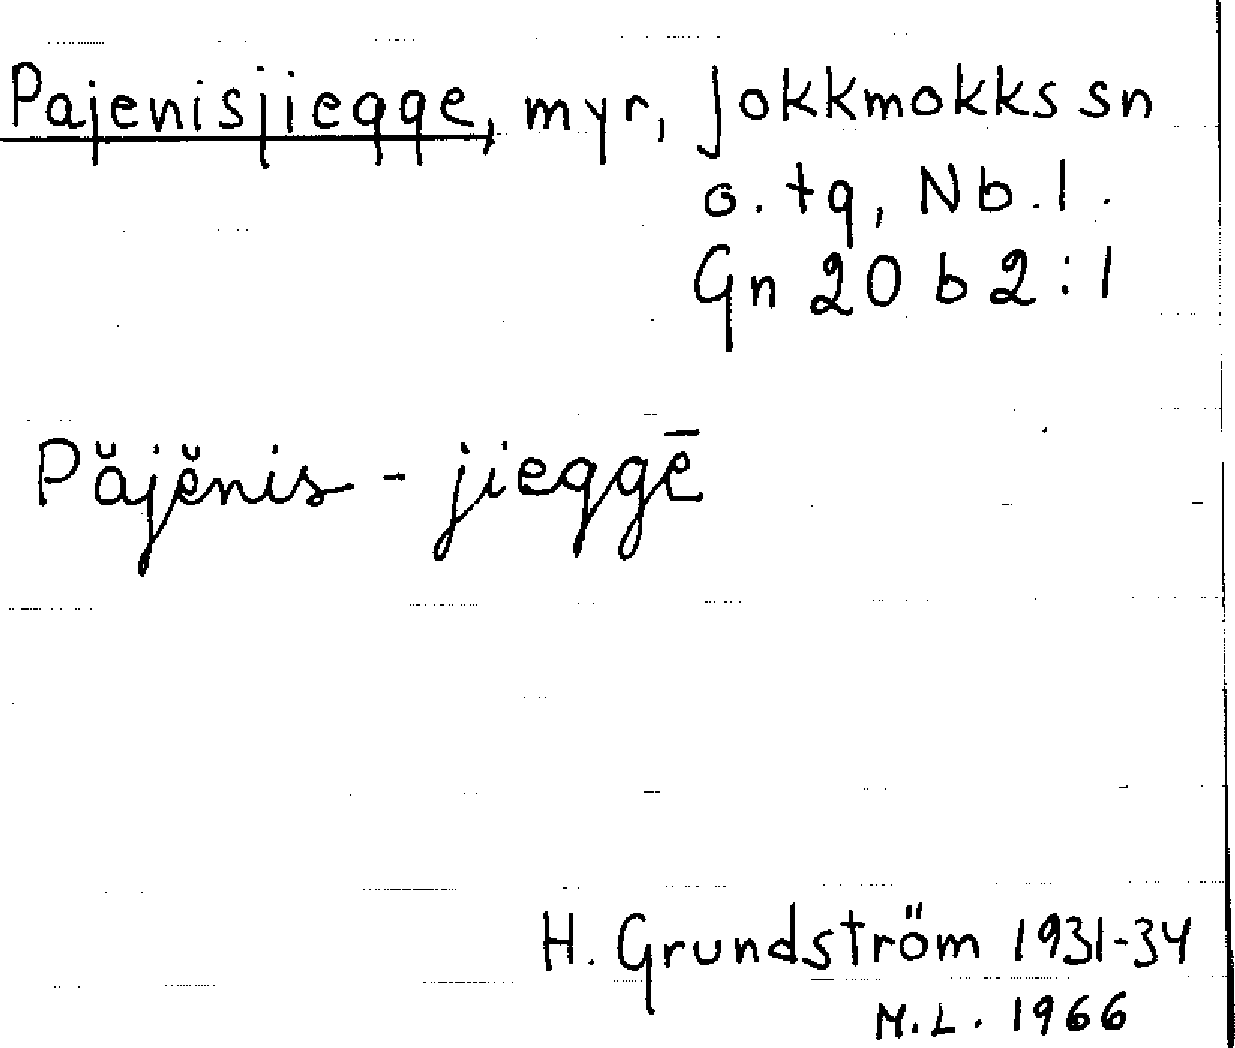 Pajenisjiegge, myr, Jokkmokks sn
o. tg, Nb. l.
Gn 20 b 2:1
Păjĕnis - jieggē
H. Grundström 1931-34
M.L. 1966